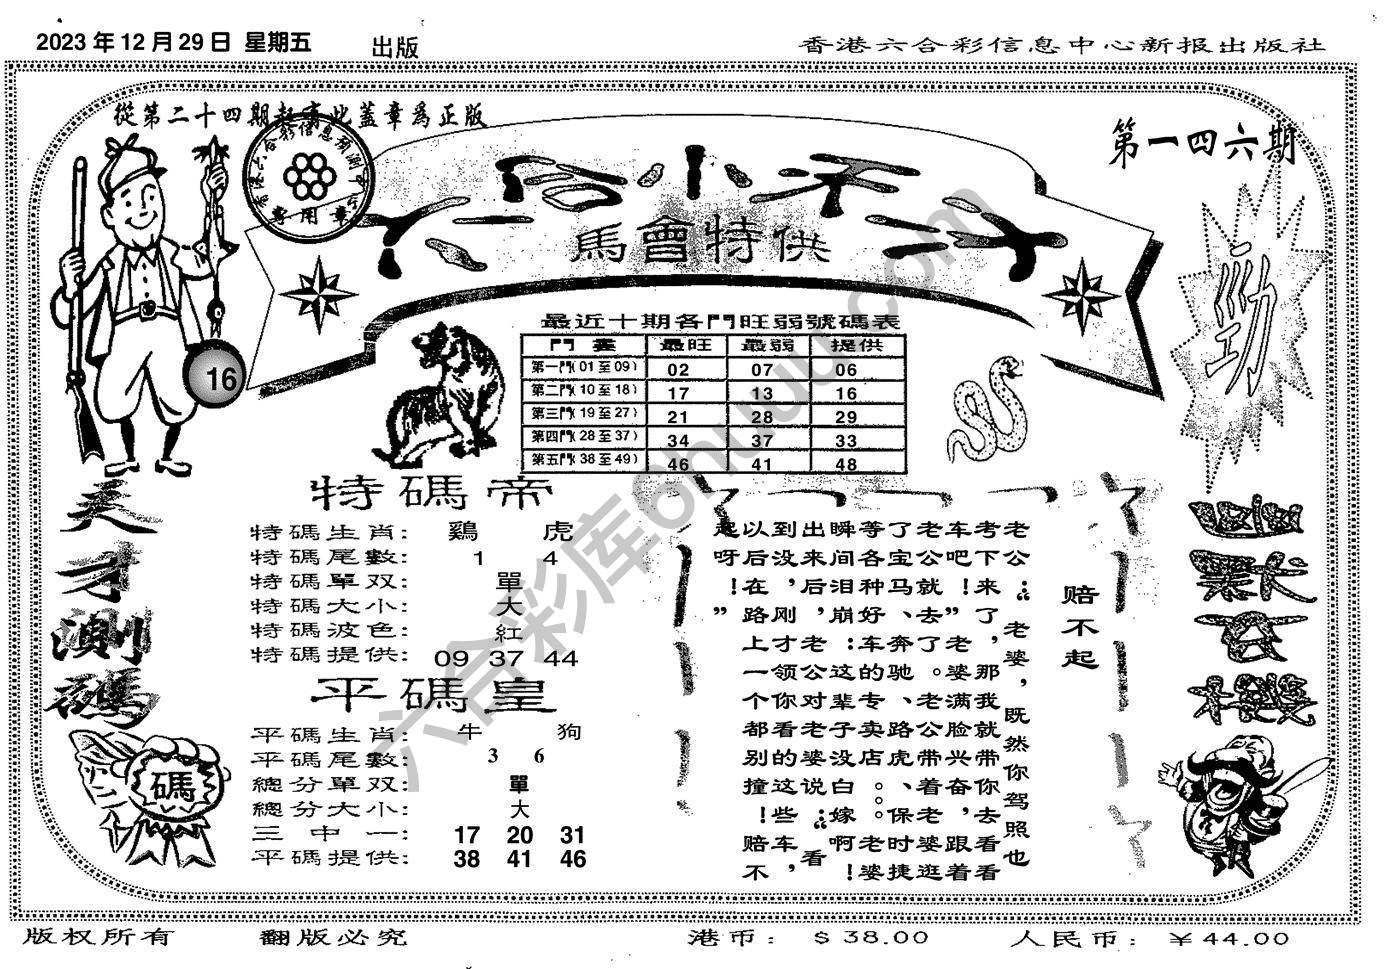 2023年12月29日 星期五
出版
香港六合彩信息中心新报出版社
從第二十四期起請此蓋章爲正版
香港六合彩信息预测中心
專用章
第一四六期
六合小天才
馬會特供
勁
16
最近十期各門旺弱號碼表
門數 最旺 最弱 提供
第一門(01至09) 02 07 06
第二門(10至18) 17 13 16
第三門(19至27) 21 28 29
第四門(28至37) 34 37 33
第五門(38至49) 46 41 48
天才測碼
碼
特碼帝
特碼生肖: 鷄 虎
特碼尾數: 1 4
特碼單双: 單
特碼大小: 大
特碼波色: 紅
特碼提供: 09 37 44
平碼皇
平碼生肖: 牛 狗
平碼尾數: 3 6
總分單双: 單
總分大小: 大
三中一: 17 20 31
平碼提供: 38 41 46
赔不起
老公:“老婆，既然你驾照也
考下来了，那我就带你去看看
车吧！”老婆满脸兴奋跟着
老公就去了。老公带着老婆逛
了宝马、奔驰、路虎、保时捷
等各种好车的专卖店。。老婆
瞬间泪崩:这辈子没白嫁啊！
出来后，老公对老婆说:“看
到没，刚才领你看的这些车，
以后在路上一个都别撞！赔不
起呀！”
六合彩库6huuu.com
版权所有
翻版必究
港币: $38.00
人民币: ￥44.00